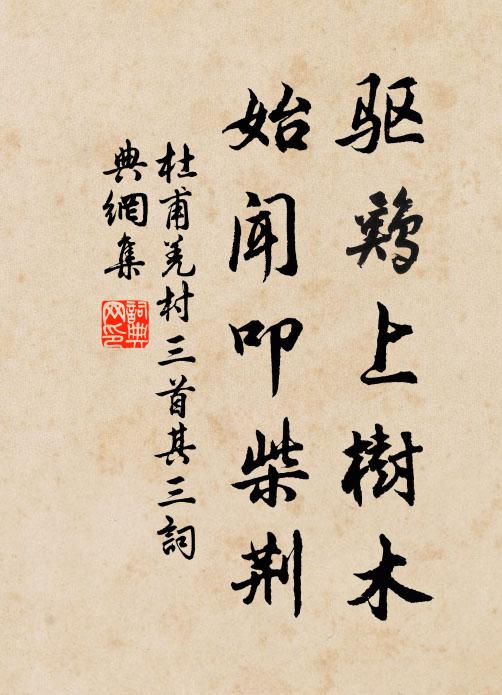 驱鷄上樹木
始闻叩柴荆
杜甫羌村三首其三詞
典網集
詞典
网印